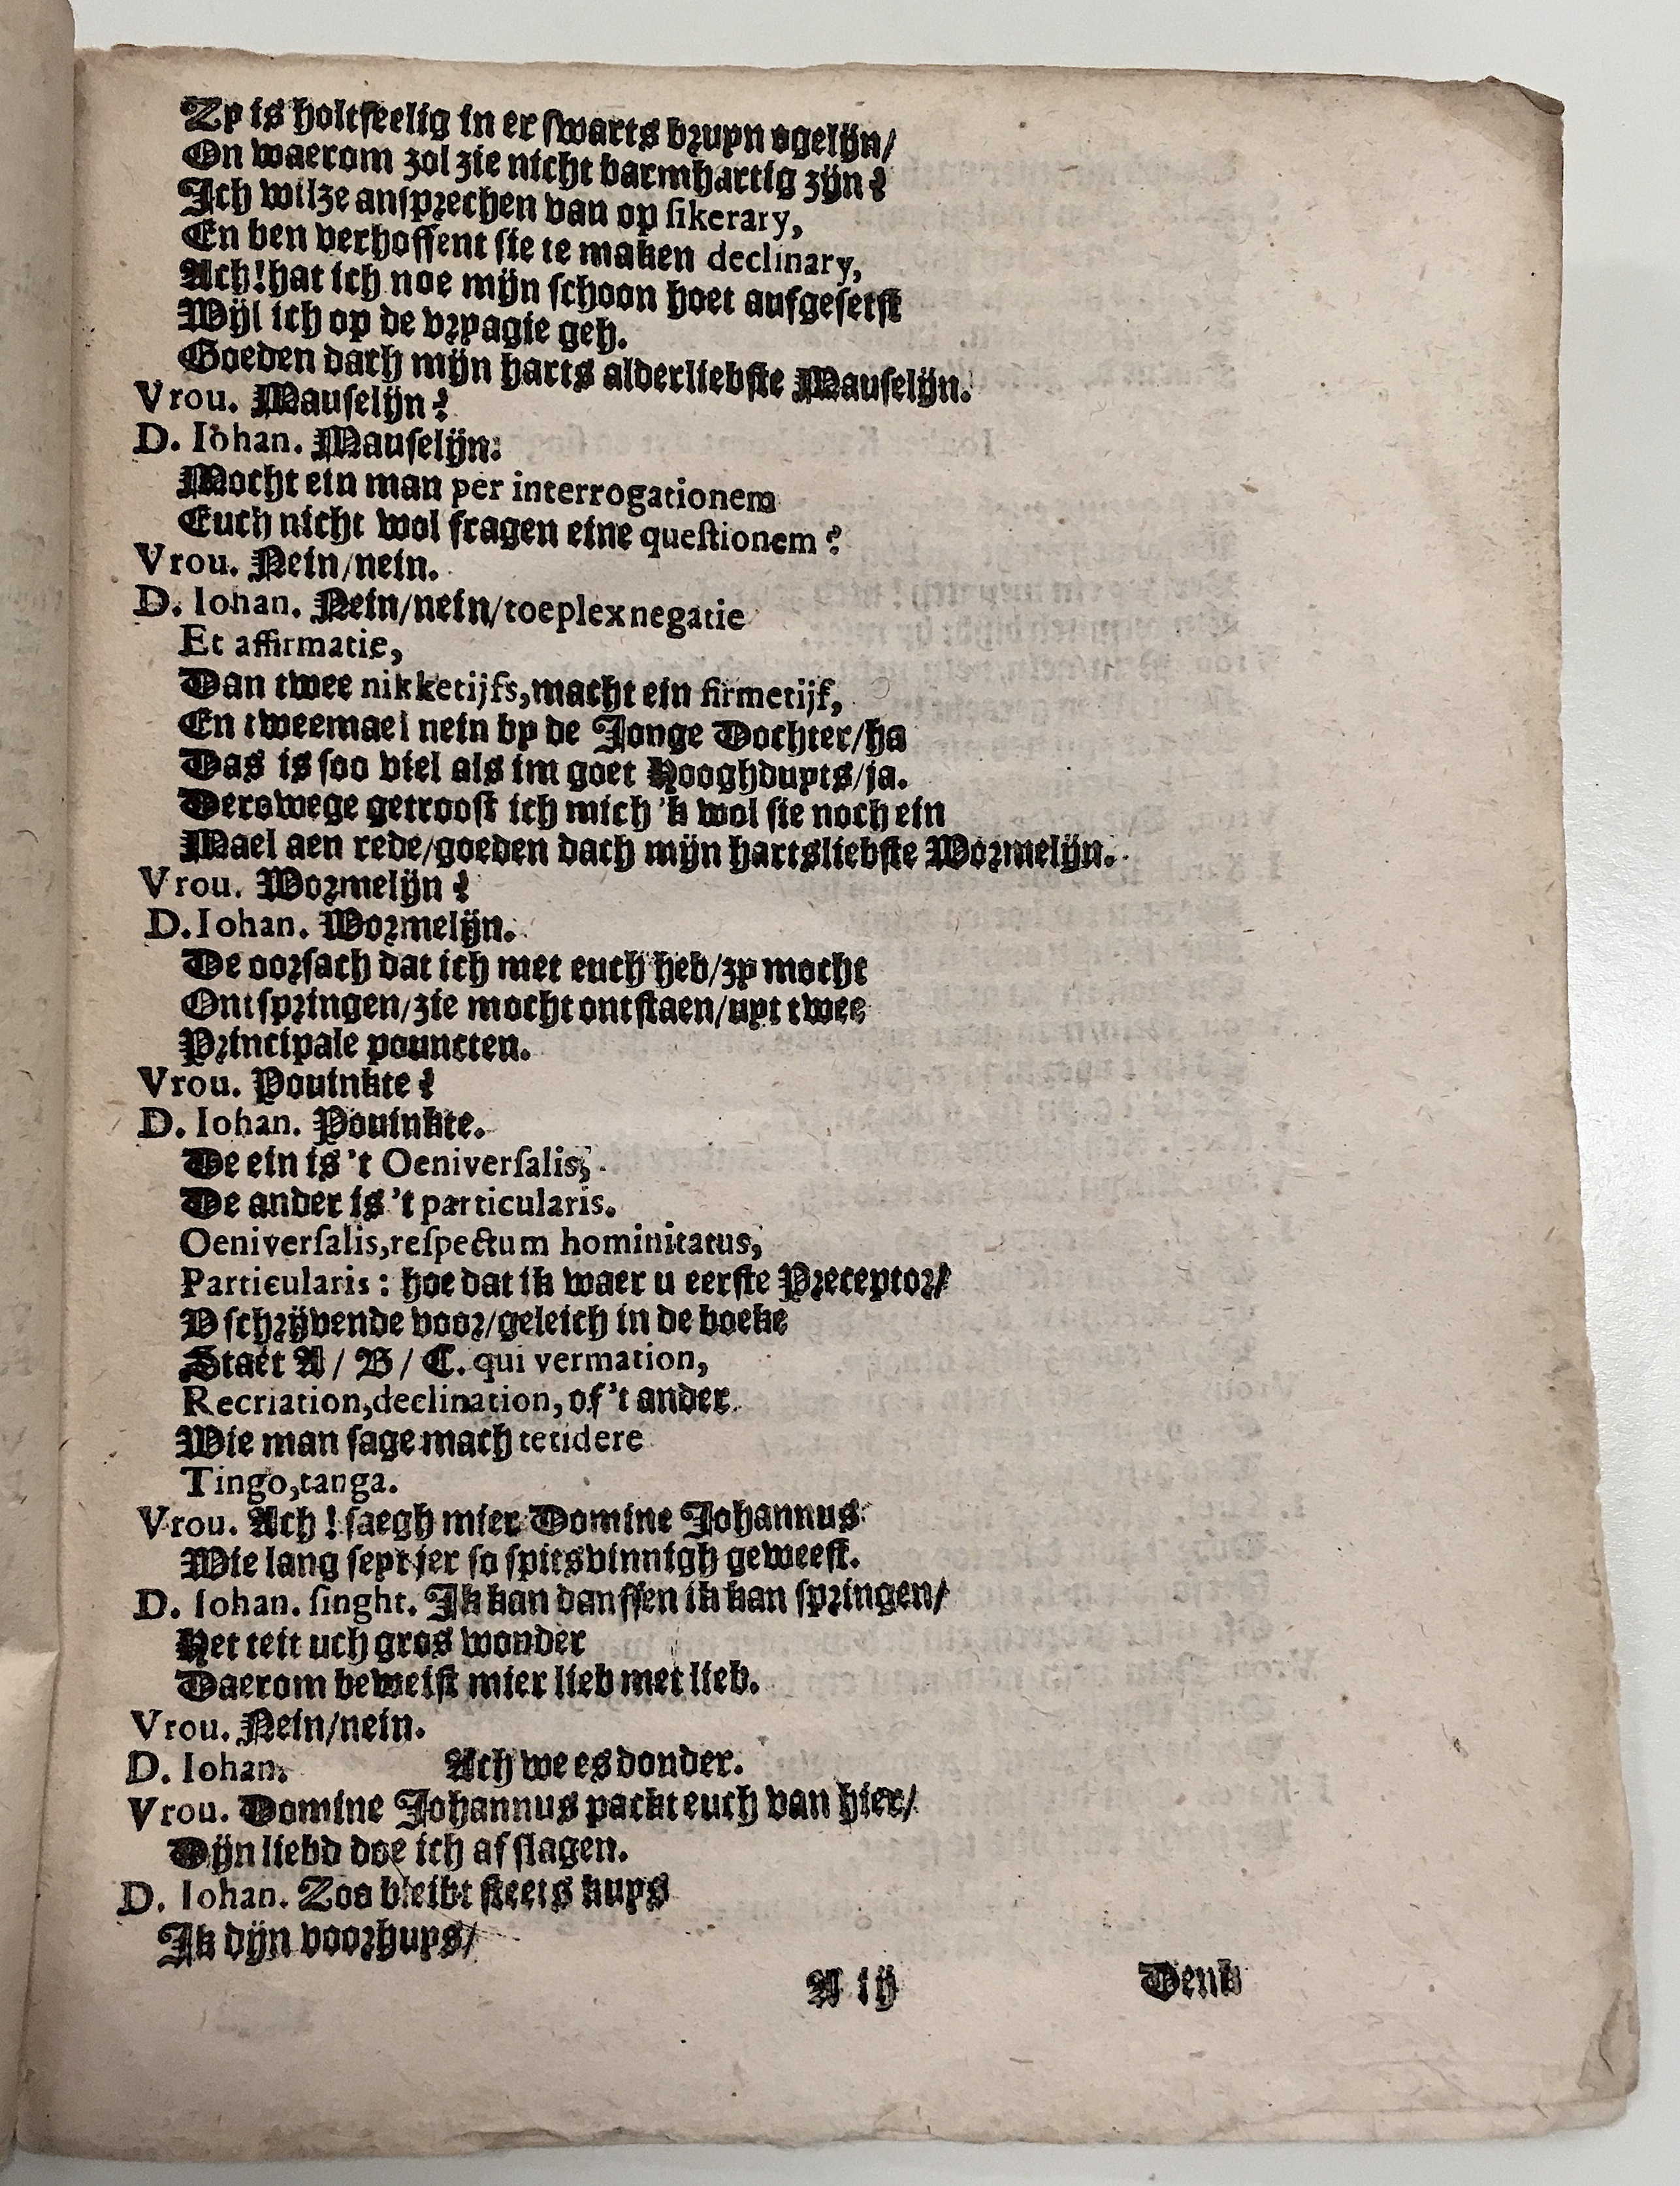 Zy is holtseelig in er swarts bruyn ogelijn/
On waerom zol zie nicht barmhartig zijn?
Ich wilze ansprechen van op sikerary,
En ben verhoffent sie te maken declinary,
Ach! hat ich noe mijn schoon hoet aufgesetst
Wijl ich op de vryagie geh.
Goeden dach mijn harts alderliebste Mauselijn.
Vrou. Mauselijn?
D. Iohan. Mauselijn:
Mocht ein man per interrogationem
Euch nicht wol fragen eine questionem?
Vrou. Nein/nein.
D. Iohan. Nein/nein/toeplex negatie
Et affirmatie,
Dan twee nikketijfs, macht ein firmetijf,
En tweemael nein by de Jonge Dochter/ha
Das is soo viel als im goet Hooghduyts/ja.
Derowege getroost ich mich 'k wol sie noch ein
Mael aen rede/goeden dach mijn hartsliebste Wormelijn.
Vrou. Wormelijn?
D. Iohan. Wormelijn.
De oorsach dat ich met euch heb/zy mocht
Ontspringen/zie mocht ontstaen/uyt twee
Principale pouncten.
Vrou. Pouinkte?
D. Iohan. Pouinkte.
De ein is 't Oeniversalis,
De ander is 't particularis.
Oeniversalis, respectum hominitatus,
Particularis: hoe dat ik waer u eerste Preceptor/
V schrijvende voor/geleich in de boeke
Staet A/ B/ C. qui vermation,
Recriation, declination, of 't ander
Wie man sage mach tetidere
Tingo, tanga.
Vrou. Ach! saegh mier Domine Johannus
Wie lang seyt jer so spitsvinnigh geweest.
D. Iohan. singht. Ik kan danssen ik kan springen/
Het teit uch gros wonder
Daerom beweist mier lieb met lieb.
Vrou. Nein/nein.
D. Iohan. Ach we es donder.
Vrou. Domine Johannus packt euch van hier/
Dijn liebd doe ich af slagen.
D. Iohan. Zoo bleibt steets kuys
Ik dijn voorhuys/
A ij Denk